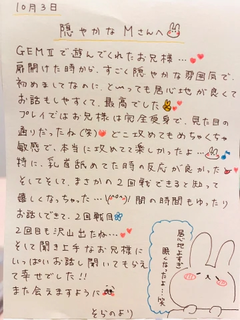 10月3日
隠やかなMさんへ
GEMⅡで遊んでくれたお兄様…
扉開けた時から、すごく隠やかな雰囲気で、
初めましてなのに、といっても居心地が良くて
お話もしやすくて、最高でした
プレイではお兄様は完全受身で、見た目の
通りだったね(笑) どこ攻めてもめちゃくちゃ
敏感で、本当に攻めてて楽しかったよ…
特に、乳首舐めてた時の反応が良かった
そしてそして、まさかの2回戦できると知って
嬉しくなっちゃった…
間の時間もゆったり
お話しできて、2回戦目
2回目も沢山出たね…
そして聞き上手なお兄様に
いっぱいお話し聞いてもらえ
て幸せでした!!
また会えますように
そらのより
居心地よすぎて
眠くなったよ…笑